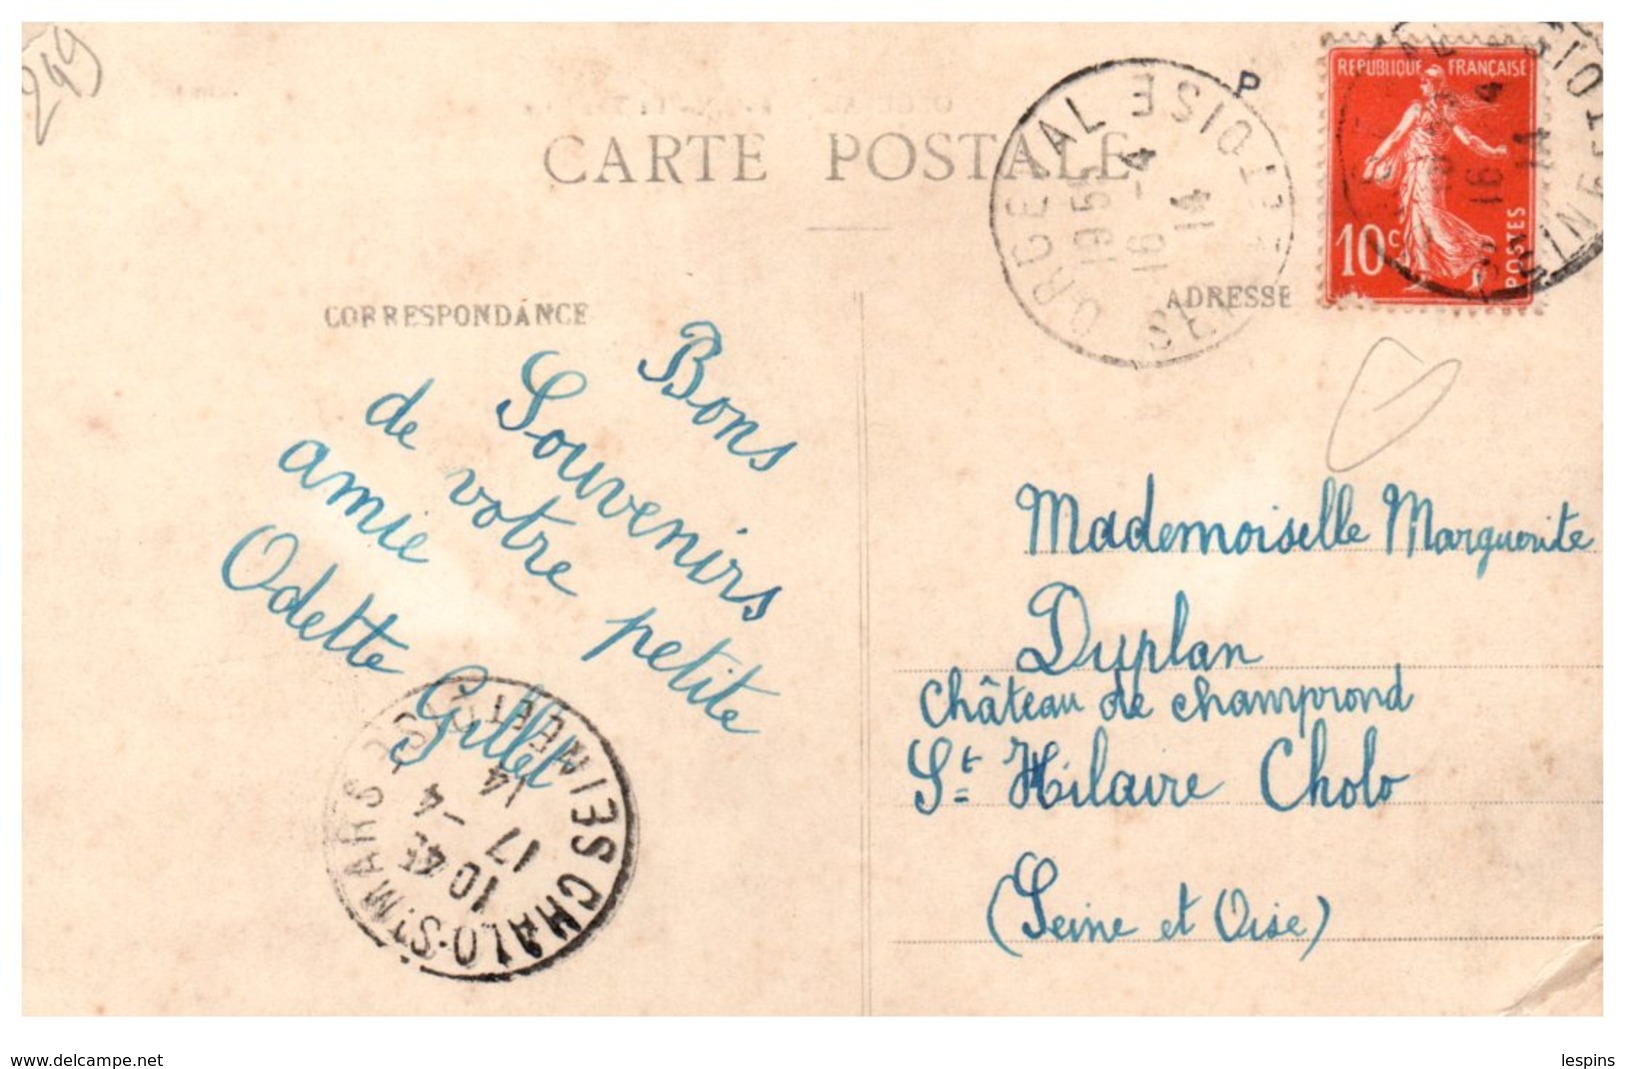 249
CARTE POSTALE
CORRESPONDANCE
ADRESSE
P
ORGEVAL
SEINE-ET-OISE
19 5
16 -4
14
REPUBLIQUE FRANÇAISE
10c
POSTES
16 -4
14
Bons
Souvenirs
de votre petite
amie
Odette Gillet
Mademoiselle Marguerite
Duplan
Château de champrond
St Hilaire Chalo
(Seine et Oise)
CHALO-ST MARS
SEINE ET OISE
10 45
17 -4
14
www.delcampe.net
lespins